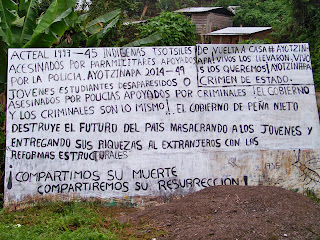 ACTEAL 1997 - 45 INDIGENAS TSOTSILES
ACESINADOS POR PARAMILITARES APOYADOS
POR LA POLICIA. AYOTZINAPA 2014 - 49
JOVENES ESTUDIANTES DESAPARESIDOS O
ASESINADOS POR POLICIAS APOYADOS POR CRIMINALES ¡EL GOBIERNO
Y LOS CRIMINALES SON LO MISMO! ¡. EL GOBIERNO DE PEÑA NIETO
DESTRUYE EL FUTURO DEL PAIS MASACRANDO A LOS JOVENES Y
ENTREGANDO SUS RIQUEZAS AL EXTRANJEROS CON LAS
REFORMAS ESTRUCTURALES
¡COMPARTIMOS SU MUERTE
COMPARTIREMOS SU RESURRECCIÓN!
DE VUELTA A CASA # AYOTZIN
APA! VIVOS LOS LLEVARON. VIVO
S LOS QUEREMOS! AYOTZINAPA
CRIMEN DE ESTADO.